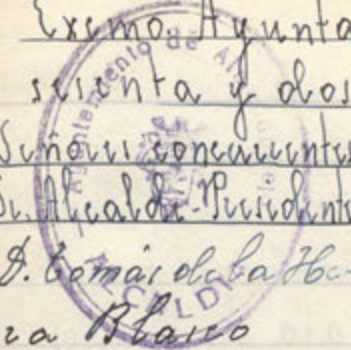 Exmo. Ayunta
sesenta y dos
Señores concurrentes
Sr. Alcalde-Presidente
D. Tomás de la He-
ra Blasco
Ayuntamiento de
ALCALDI